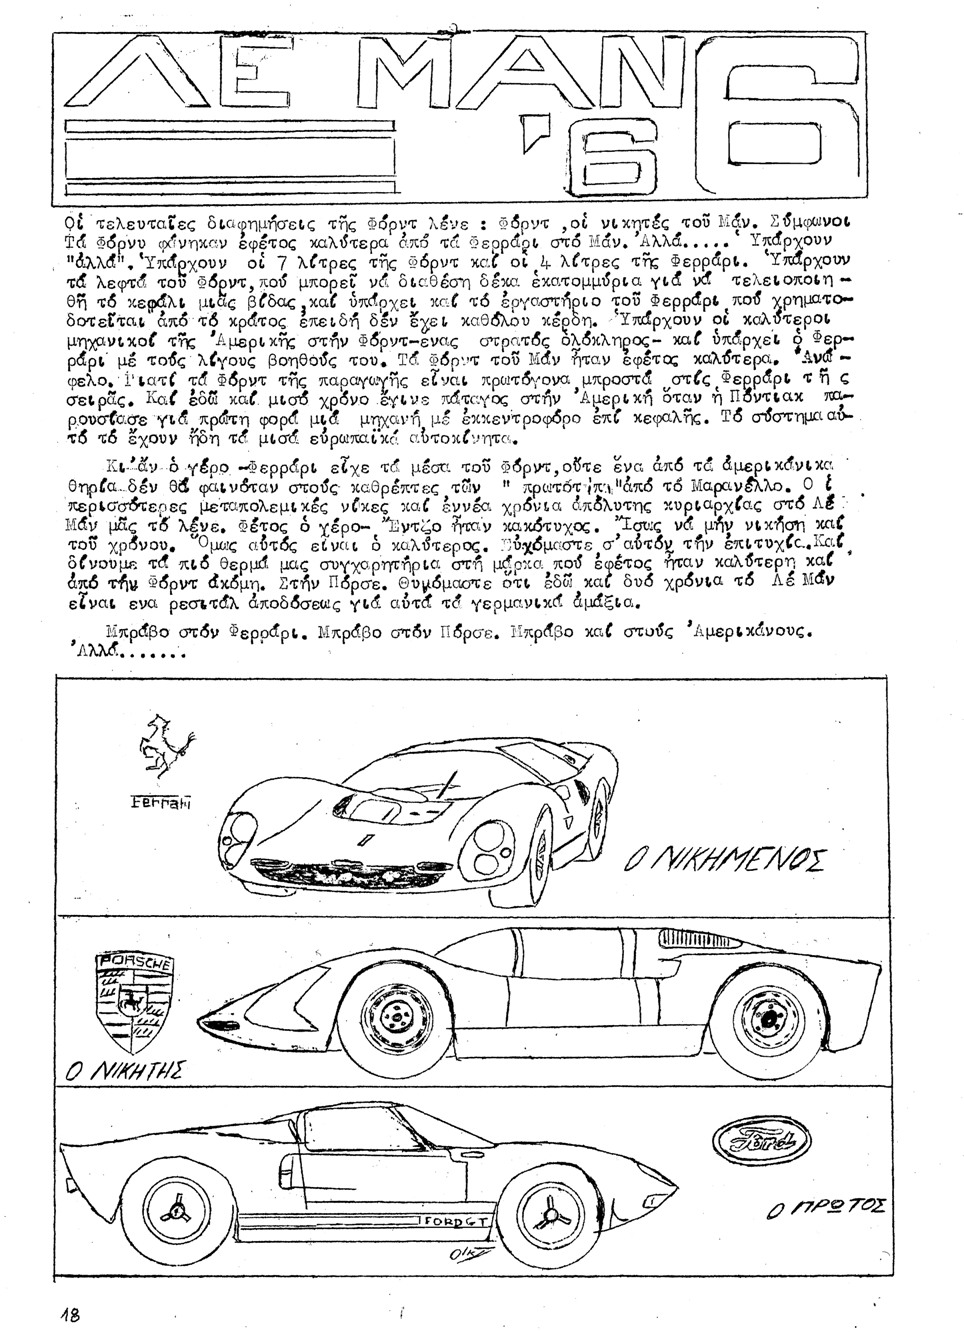 ΛΕ ΜΑΝ '66
Οἱ τελευταῖες διαφημήσεις τῆς Φόρντ λένε : Φόρντ ,οἱ νικητές τοῦ Μάν. Σύμφωνοι
Τά Φόρντ φάνηκαν ἐφέτος καλύτερα ἀπό τά Φερράρι στό Μάν. Ἀλλά..... Ὑπάρχουν
"ἀλλά". Ὑπάρχουν οἱ 7 λίτρες τῆς Φόρντ καί οἱ 4 λίτρες τῆς Φερράρι. Ὑπάρχουν
τά λεφτά τοῦ Φόρντ,πού μπορεῖ νά διαθέση δέκα ἑκατομμύρια γιά νά τελειοποιη-
θῆ τό κεφάλι μιᾶς βίδας,καί ὑπάρχει καί τό ἐργαστήριο τοῦ Φερράρι πού χρηματο-
δοτεῖται ἀπό τό κράτος ἐπειδή δέν ἔχει καθόλου κέρδη. Ὑπάρχουν οἱ καλύτεροι
μηχανικοί τῆς Ἀμερικῆς στήν Φόρντ-ἕνας στρατός ὁλόκληρος- καί ὑπάρχει ὁ Φερ-
ράρι μέ τούς λίγους βοηθούς του. Τά Φόρντ τοῦ Μάν ἦταν ἐφέτος καλύτερα. Ἀνώ-
φελο. Γιατί τά Φόρντ τῆς παραγωγῆς εἶναι πρωτόγονα μπροστά στίς Φερράρι τῆς
σειρᾶς. Καί ἐδῶ καί μισό χρόνο ἔγινε πάταγος στήν Ἀμερική ὅταν ἡ Πόντιακ πα-
ρουσίασε γιά πρώτη φορά μιά μηχανή μέ ἐκκεντροφόρο ἐπί κεφαλῆς. Τό σύστημα αὐ-
τό τό ἔχουν ἤδη τά μισά εὐρωπαϊκά αὐτοκίνητα.
Κι'ἄν ὁ γέρο -Φερράρι εἶχε τά μέσα τοῦ Φόρντ,οὔτε ἕνα ἀπό τά ἀμερικάνικα
θηρία δέν θά φαινόταν στούς καθρέπτες τῶν " πρωτοτύπων"ἀπό τό Μαρανέλλο. Οἱ
περισσότερες μεταπολεμικές νίκες καί ἐννέα χρόνια ἀπόλυτης κυριαρχίας στό Λέ
Μάν μᾶς τό λένε. Φέτος ὁ γέρο- Ἔντζο ἦταν κακότυχος. Ἴσως νά μήν νικήση καί
τοῦ χρόνου. Ὅμως αὐτός εἶναι ὁ καλύτερος. Εὐχόμαστε σ'αὐτόν τήν ἐπιτυχία..Καί
δίνουμε τά πιό θερμά μας συγχαρητήρια στή μάρκα πού ἐφέτος ἦταν καλύτερη καί
ἀπό τήν Φόρντ ἀκόμη. Στήν Πόρσε. Θυμόμαστε ὅτι ἐδῶ καί δυό χρόνια τό Λέ Μάν
εἶναι ενα ρεσιτάλ ἀποδόσεως γιά αὐτά τά γερμανικά ἀμάξια.
Μπράβο στόν Φερράρι. Μπράβο στόν Πόρσε. Μπράβο καί στούς Ἀμερικάνους.
Ἀλλά.......
Ferrari
Ο ΝΙΚΗΜΕΝΟΣ
PORSCHE
Ο ΝΙΚΗΤΗΣ
Ford
Ο ΠΡΩΤΟΣ
FORD GT
18